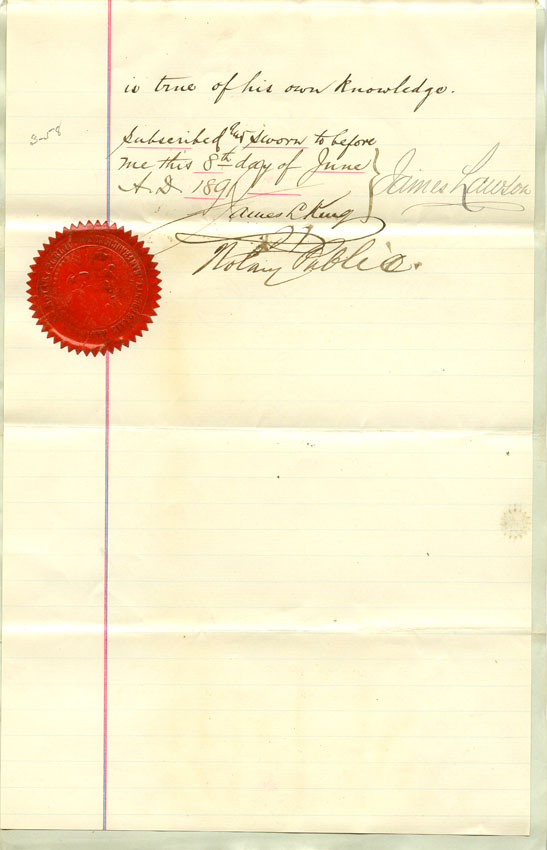 is true of his own knowledge.
3-58
Subscribed and sworn to before
me this 8th day of June
A.D. 1891
James Lawson
James L King
Notary Public.